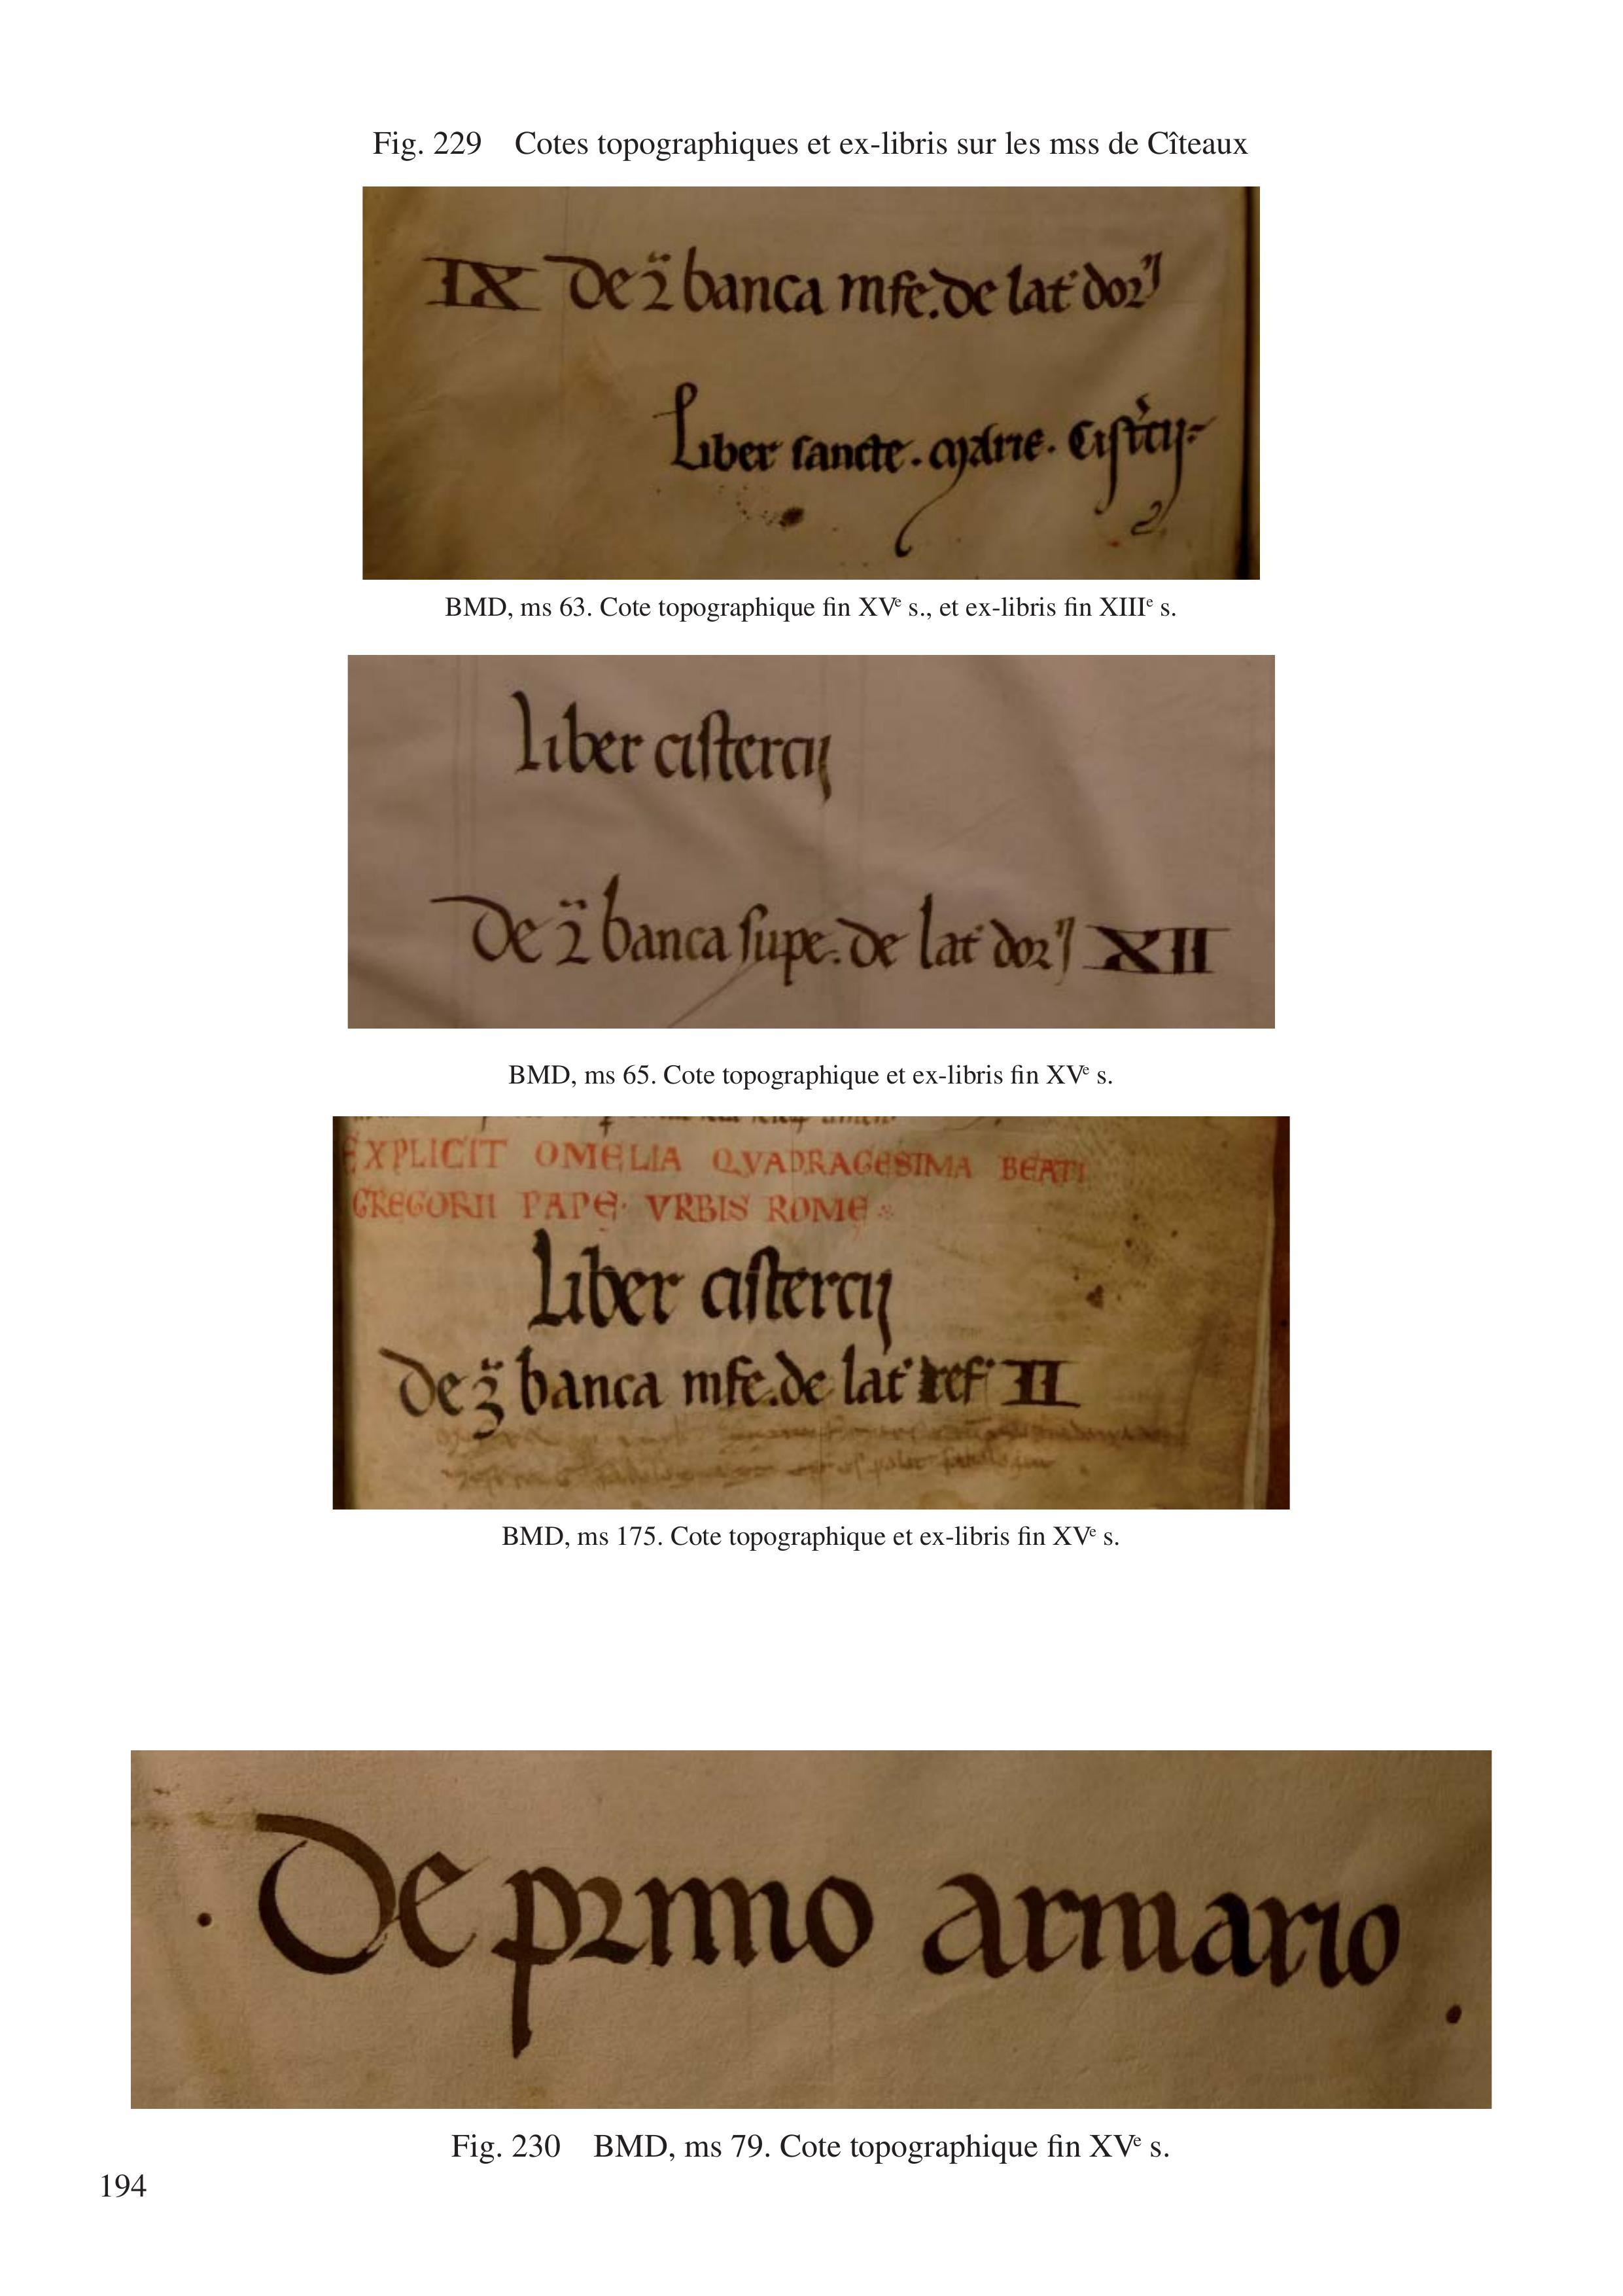 Fig. 229 Cotes topographiques et ex-libris sur les mss de Cîteaux
IX De 2ᵃ banca infe. de lat' dor'
Liber sancte. marie. Cist'cij
BMD, ms 63. Cote topographique fin XVᵉ s., et ex-libris fin XIIIᵉ s.
liber cistercij
De 2ᵃ banca supe. de lat' dor' XII
BMD, ms 65. Cote topographique et ex-libris fin XVᵉ s.
EXPLICIT OMELIA QVADRAGESIMA BEATI
GREGORII PAPE. VRBIS ROME
Liber cistercij
De 3ᵃ banca infe. de lat' ref' II
BMD, ms 175. Cote topographique et ex-libris fin XVᵉ s.
. De primo armario .
Fig. 230 BMD, ms 79. Cote topographique fin XVᵉ s.
194